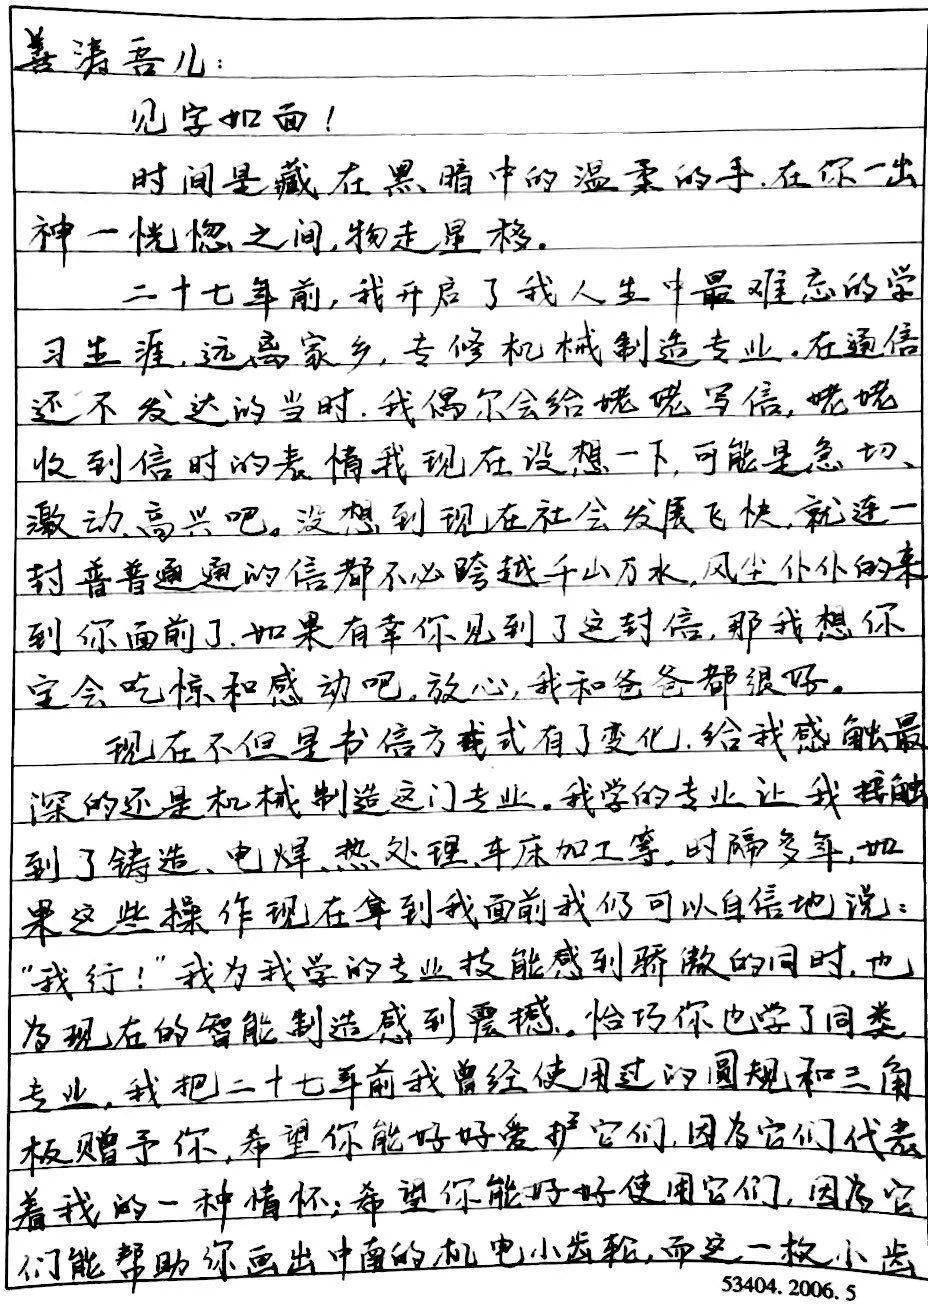 善涛吾儿：
见字如面！
时间是藏在黑暗中的温柔的手，在你一出
神一恍惚之间，物走星移。
二十七年前，我开启了我人生中最难忘的学
习生涯，远离家乡，专修机械制造专业。在通信
还不发达的当时，我偶尔会给姥姥写信，姥姥
收到信时的表情我现在设想一下，可能是急切、
激动、高兴吧。没想到现在社会发展飞快，就连一
封普普通通的信都不必跨越千山万水，风尘仆仆的来
到你面前了，如果有幸你见到了这封信，那我想你
定会吃惊和感动吧，放心，我和爸爸都很好。
现在不但是书信方式有了变化，给我感触最
深的还是机械制造这门专业。我学的专业让我接触
到了铸造、电焊、热处理、车床加工等，时隔多年，如
果这些操作现在拿到我面前我仍可以自信地说：
“我行！”我为我学的专业技能感到骄傲的同时，也
为现在的智能制造感到震撼。恰巧你也学了同类
专业，我把二十七年前我曾经使用过的圆规和三角
板赠予你，希望你能好好爱护它们，因为它们代表
着我的一种情怀；希望你能好好使用它们，因为它
们能帮助你画出中南的机电小齿轮，而这一枚小齿
53404.2006.5